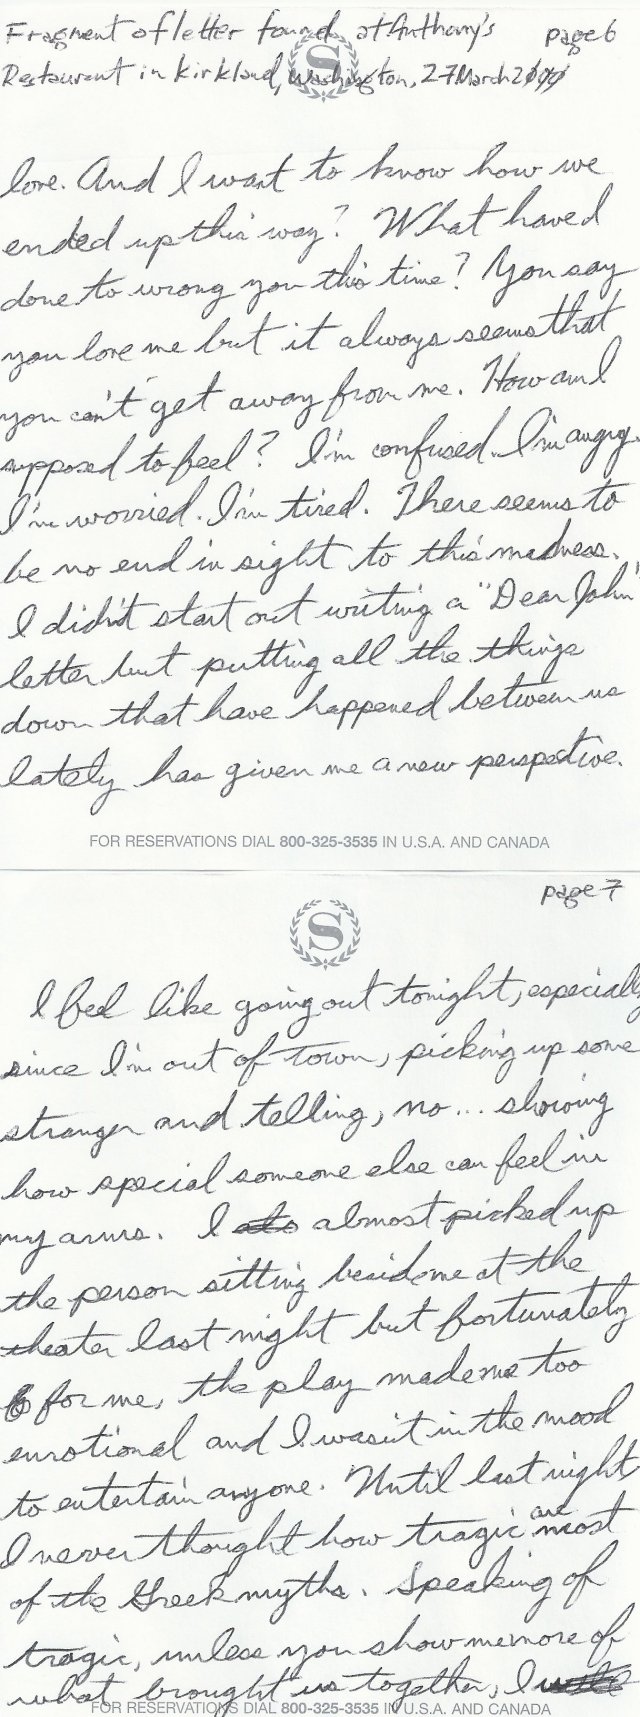 Fragment of letter found at Anthony's page 6
Restaurant in Kirkland, Washington, 27 March 2000
S
love. And I want to know how we
ended up this way? What have I
done to wrong you this time? You say
you love me but it always seems that
you can't get away from me. How am I
supposed to feel? I'm confused. I'm angry.
I'm worried. I'm tired. There seems to
be no end in sight to this madness.
I didn't start out writing a "Dear John"
letter but putting all the things
down that have happened between us
lately has given me a new perspective.
FOR RESERVATIONS DIAL 800-325-3535 IN U.S.A. AND CANADA
page 7
S
I feel like going out tonight, especially
since I'm out of town, picking up some
stranger and telling, no... showing
how special someone else can feel in
my arms. I almost picked up
the person sitting beside me at the
theater last night but fortunately
for me, the play made me too
emotional and I wasn't in the mood
to entertain anyone. Until last night
I never thought how tragic are most
of the Greek myths. Speaking of
tragic, unless you show me more of
what brought us together, I
FOR RESERVATIONS DIAL 800-325-3535 IN U.S.A. AND CANADA